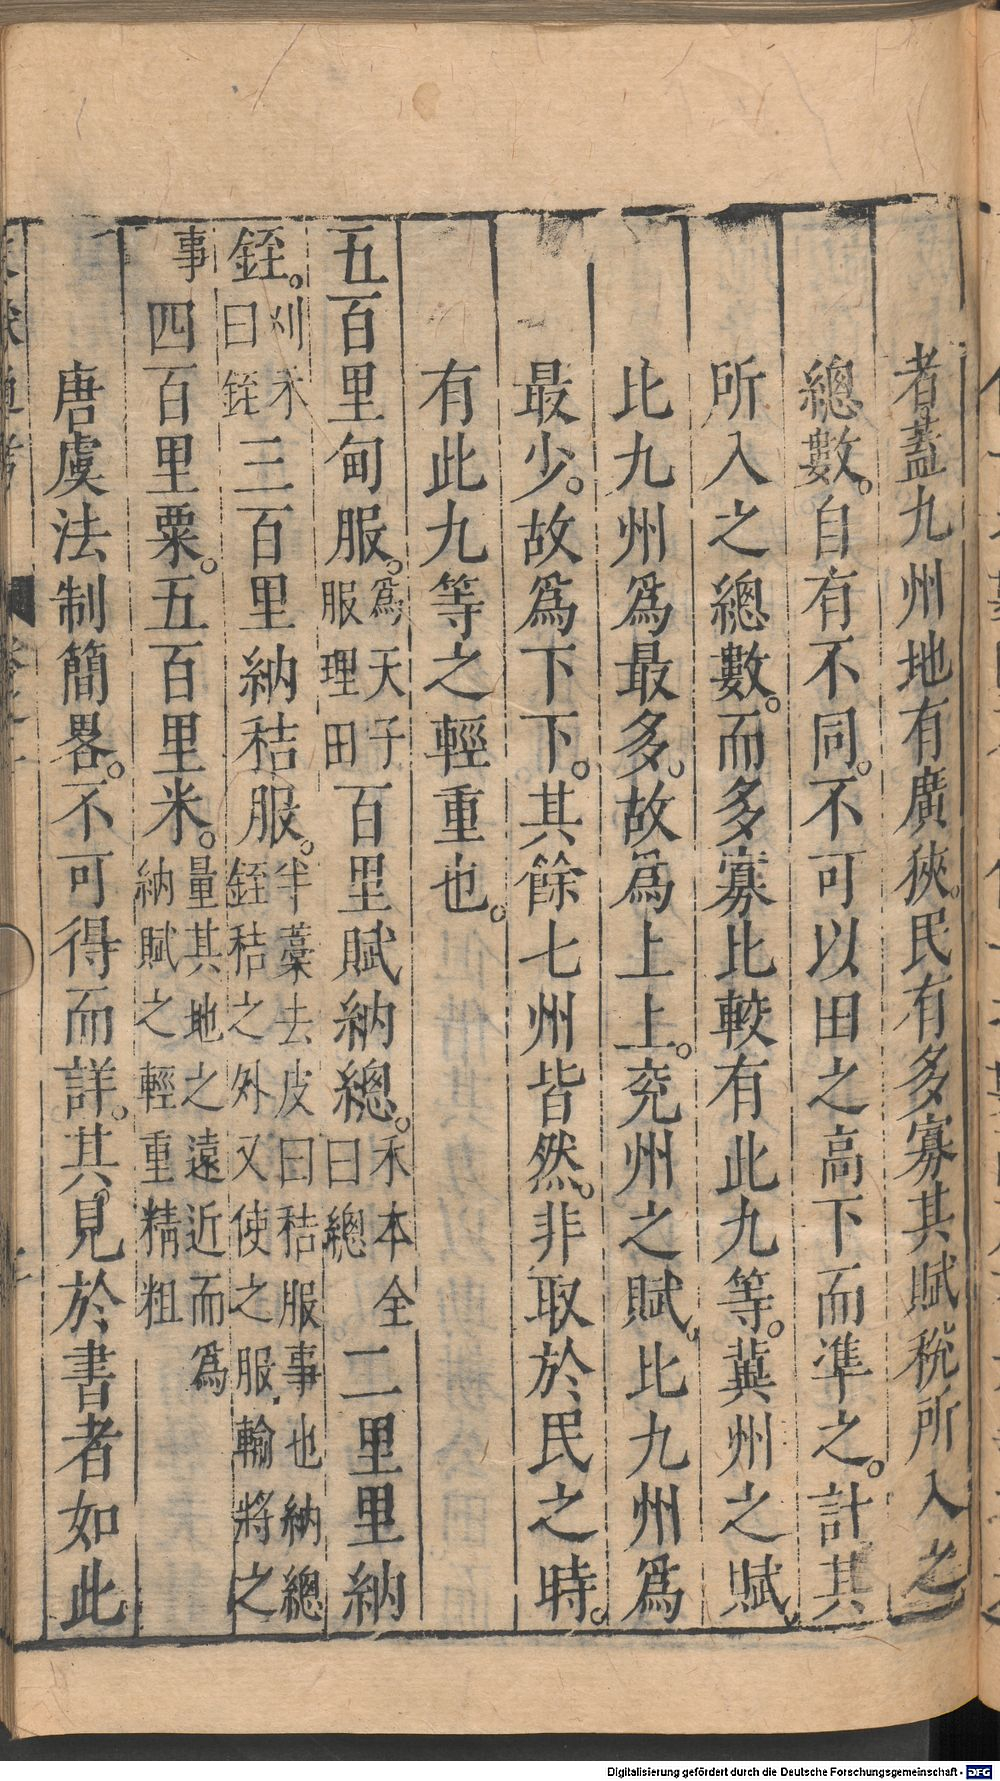 者蓋九州地有廣狹。民有多寡其賦稅所入之
總數。自有不同。不可以田之高下而凖之。計其
所入之總數。而多寡比較有此九等。冀州之賦
比九州爲最多。故爲上上。兖州之賦。比九州爲
最少。故爲下下。其餘七州皆然。非取於民之時。
有此九等之輕重也。
五百里甸服。爲天子服理田百里賦納總。禾本全曰總二里里納
銍。刈禾曰銍三百里納秸服。半藁去皮曰秸服事也納總銍秸之外又使之服輸將之
事四百里粟。五百里米。量其地之遠近而爲納賦之輕重精粗
唐虞法制簡畧。不可得而詳。其見於書者如此
Digitalisierung gefördert durch die Deutsche Forschungsgemeinschaft - DFG